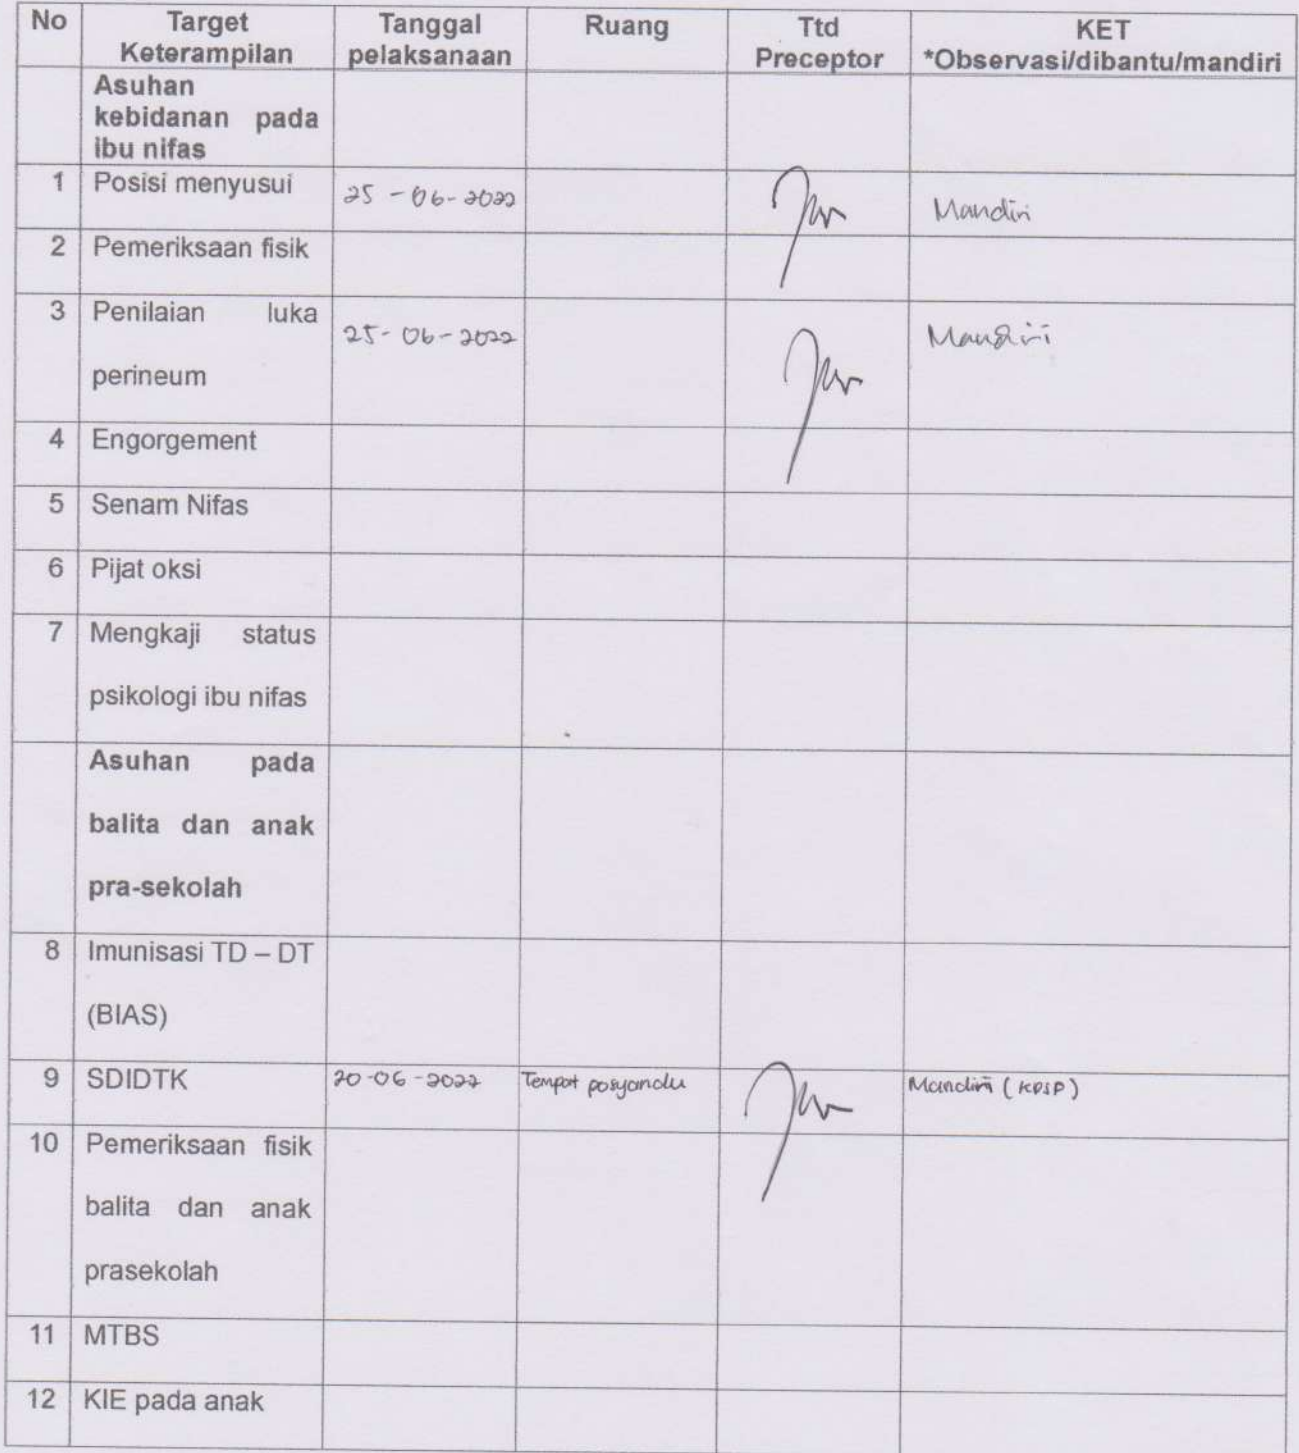 No Target Keterampilan Tanggal pelaksanaan Ruang Ttd Preceptor KET *Observasi/dibantu/mandiri
Asuhan
kebidanan pada
ibu nifas
1 Posisi menyusui 25 - 06 - 2022 Mandiri
2 Pemeriksaan fisik
3 Penilaian luka 25 - 06 - 2022 Mandiri
perineum
4 Engorgement
5 Senam Nifas
6 Pijat oksi
7 Mengkaji status
psikologi ibu nifas
Asuhan pada
balita dan anak
pra-sekolah
8 Imunisasi TD – DT
(BIAS)
9 SDIDTK 20-06-2022 Tempat posyandu Mandiri (KPSP)
10 Pemeriksaan fisik
balita dan anak
prasekolah
11 MTBS
12 KIE pada anak